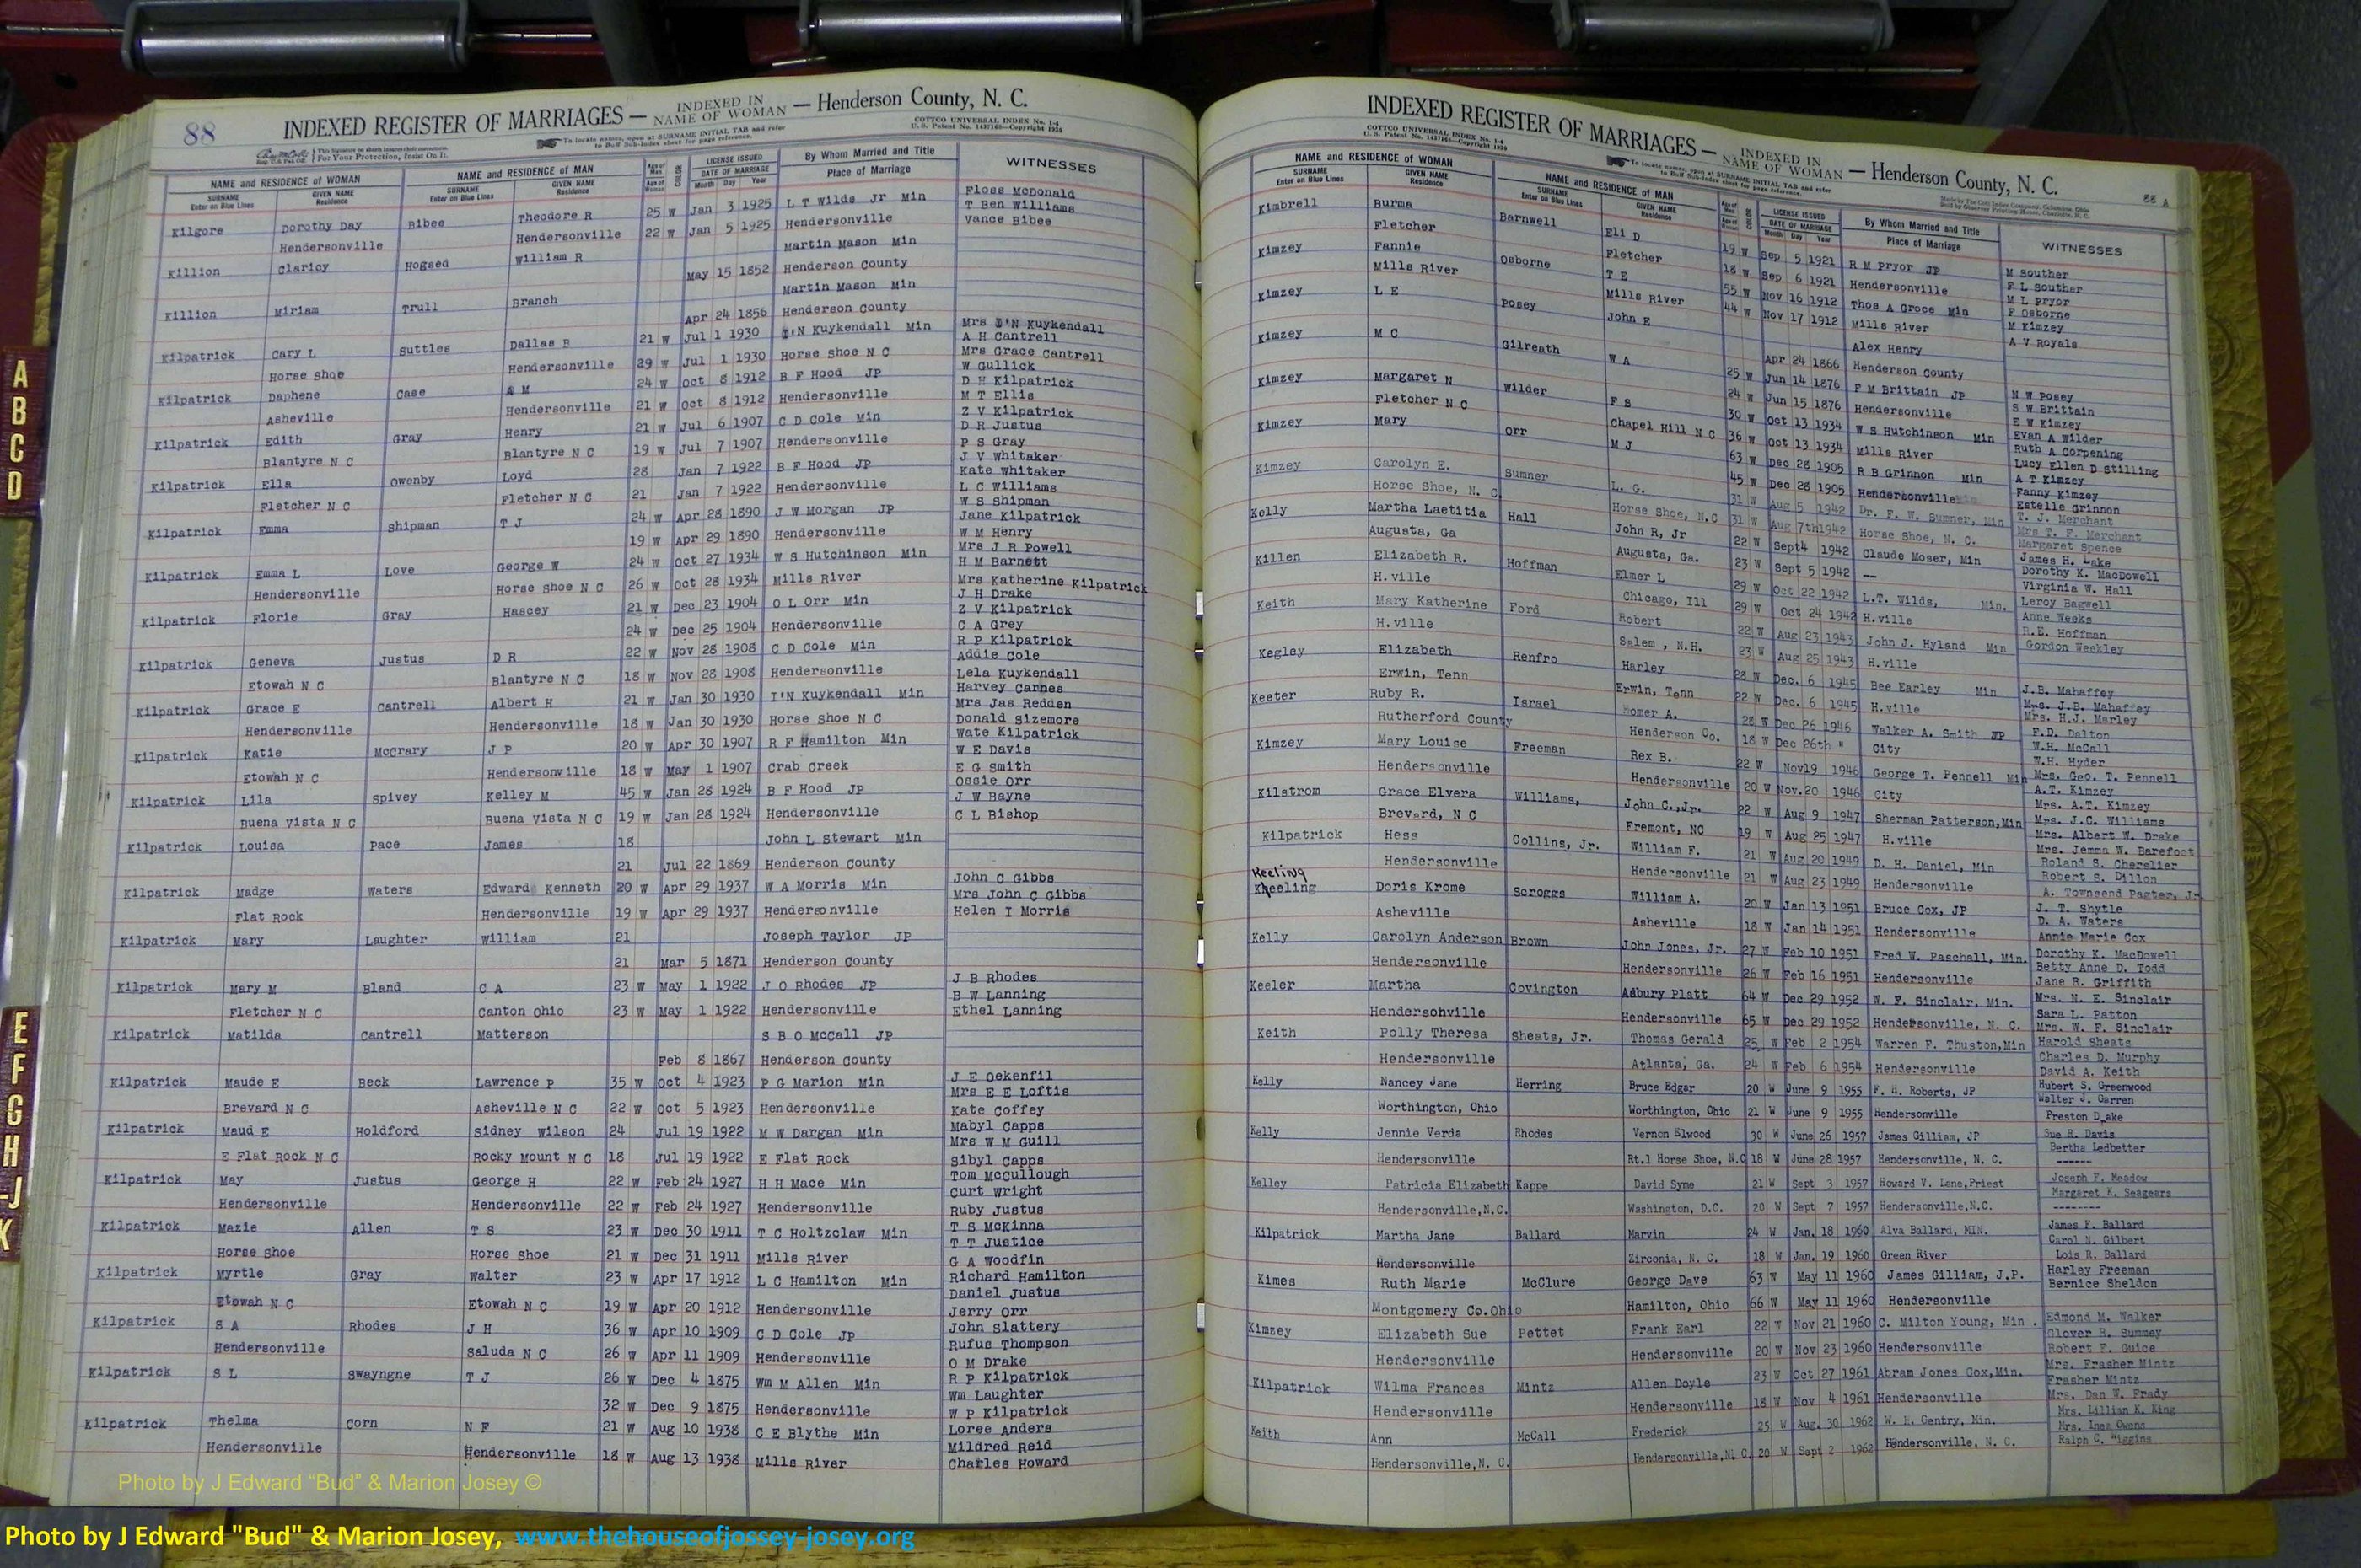 88
INDEXED REGISTER OF MARRIAGES — INDEXED IN NAME OF WOMAN — Henderson County, N. C.
To locate names, open at SURNAME INITIAL TAB and refer to Buff Sub-Index sheet for page reference.
COTTCO UNIVERSAL INDEX No. 1-4
U. S. Patent No. 1437169—Copyright 1939
For Your Protection, Insist On It.
NAME and RESIDENCE OF WOMAN NAME and RESIDENCE OF MAN COLOR LICENSE ISSUED By Whom Married and Title WITNESSES
SURNAME GIVEN NAME SURNAME GIVEN NAME DATE OF MARRIAGE Place of Marriage
Enter on Blue Lines Residence Enter on Blue Lines Residence Month Day Year
Kilgore Dorothy Day Bibee Theodore R 25 W Jan 3 1925 L T Wilds Jr Min Floss McDonald
T Ben Williams
Hendersonville Hendersonville 22 W Jan 5 1925 Hendersonville Vance Bibee
Killion Claricy Hogsed William R Martin Mason Min
May 15 1852 Henderson County
Killion Miriam Trull Branch Martin Mason Min
Apr 24 1856 Henderson County
Kilpatrick Cary L Suttles Dallas B 21 W Jul 1 1930 I'N Kuykendall Min Mrs I'N Kuykendall
A H Cantrell
Horse Shoe Hendersonville 29 W Jul 1 1930 Horse Shoe N C Mrs Grace Cantrell
Kilpatrick Daphene Case & M 24 W Oct 8 1912 B F Hood JP W Gullick
D H Kilpatrick
Asheville Hendersonville 21 W Oct 8 1912 Hendersonville M T Ellis
Kilpatrick Edith Gray Henry 21 W Jul 6 1907 C D Cole Min Z V Kilpatrick
D R Justus
Blantyre N C Blantyre N C 19 W Jul 7 1907 Hendersonville P S Gray
Kilpatrick Ella Owenby Loyd 28 Jan 7 1922 B F Hood JP J V Whitaker
Kate Whitaker
Fletcher N C Fletcher N C 21 Jan 7 1922 Hendersonville L C Williams
Kilpatrick Emma Shipman T J 24 W Apr 28 1890 J W Morgan JP W S Shipman
Jane Kilpatrick
19 W Apr 29 1890 Hendersonville W M Henry
Kilpatrick Emma L Love George W 24 W Oct 27 1934 W S Hutchinson Min Mrs J R Powell
H M Barnett
Hendersonville Horse Shoe N C 26 W Oct 28 1934 Mills River Mrs Katherine Kilpatrick
Kilpatrick Florie Gray Hascey 21 W Dec 23 1904 O L Orr Min J H Drake
Z V Kilpatrick
24 W Dec 25 1904 Hendersonville C A Grey
Kilpatrick Geneva Justus D R 22 W Nov 28 1908 C D Cole Min R P Kilpatrick
Addie Cole
Etowah N C Blantyre N C 18 W Nov 28 1908 Hendersonville Lela Kuykendall
Kilpatrick Grace E Cantrell Albert H 21 W Jan 30 1930 I'N Kuykendall Min Harvey Carnes
Mrs Jas Redden
Hendersonville Hendersonville 18 W Jan 30 1930 Horse Shoe N C Donald Sizemore
Kilpatrick Katie McCrary J P 20 W Apr 30 1907 R F Hamilton Min Wate Kilpatrick
W E Davis
Etowah N C Hendersonville 18 W May 1 1907 Crab Creek E G Smith
Kilpatrick Lila Spivey Kelley M 45 W Jan 28 1924 B F Hood JP Ossie Orr
J W Bayne
Buena Vista N C Buena Vista N C 19 W Jan 28 1924 Hendersonville C L Bishop
Kilpatrick Louisa Pace James 18 John L Stewart Min
21 Jul 22 1869 Henderson County
Kilpatrick Madge Waters Edward Kenneth 20 W Apr 29 1937 W A Morris Min John C Gibbs
Mrs John C Gibbs
Flat Rock Hendersonville 19 W Apr 29 1937 Hendersonville Helen I Morris
Kilpatrick Mary Laughter William 21 Joseph Taylor JP
21 Mar 5 1871 Henderson County
Kilpatrick Mary M Bland C A 23 W May 1 1922 J O Rhodes JP J B Rhodes
B W Lanning
Fletcher N C Canton Ohio 23 W May 1 1922 Hendersonville Ethel Lanning
Kilpatrick Matilda Cantrell Matterson S B O McCall JP
Feb 8 1867 Henderson County
Kilpatrick Maude E Beck Lawrence P 35 W Oct 4 1923 P G Marion Min J E Oekenfil
Mrs E E Loftis
Brevard N C Asheville N C 22 W Oct 5 1923 Hendersonville Kate Coffey
Kilpatrick Maud E Holdford Sidney Wilson 24 Jul 19 1922 M W Dargan Min Mabyl Capps
Mrs W M Guill
E Flat Rock N C Rocky Mount N C 18 Jul 19 1922 E Flat Rock Sibyl Capps
Kilpatrick May Justus George H 22 W Feb 24 1927 H H Mace Min Tom McCullough
Curt Wright
Hendersonville Hendersonville 22 W Feb 24 1927 Hendersonville Ruby Justus
Kilpatrick Mazie Allen T S 23 W Dec 30 1911 T C Holtzclaw Min T S McKinna
T T Justice
Horse Shoe Horse Shoe 21 W Dec 31 1911 Mills River G A Woodfin
Kilpatrick Myrtle Gray Walter 23 W Apr 17 1912 L C Hamilton Min Richard Hamilton
Daniel Justus
Etowah N C Etowah N C 19 W Apr 20 1912 Hendersonville Jerry Orr
Kilpatrick S A Rhodes J H 36 W Apr 10 1909 C D Cole JP John Slattery
Rufus Thompson
Hendersonville Saluda N C 26 W Apr 11 1909 Hendersonville O M Drake
Kilpatrick S L Swayngne T J 26 W Dec 4 1875 Wm M Allen Min R P Kilpatrick
Wm Laughter
32 W Dec 9 1875 Hendersonville W P Kilpatrick
Kilpatrick Thelma Corn N F 21 W Aug 10 1938 C E Blythe Min Loree Anders
Mildred Reid
Hendersonville Hendersonville 18 W Aug 13 1938 Mills River Charles Howard
INDEXED REGISTER OF MARRIAGES — INDEXED IN NAME OF WOMAN — Henderson County, N. C.
88 A
COTTCO UNIVERSAL INDEX No. 1-4
U. S. Patent No. 1437169—Copyright 1939
To locate names, open at SURNAME INITIAL TAB and refer to Buff Sub-Index sheet for page reference.
NAME and RESIDENCE OF WOMAN NAME and RESIDENCE OF MAN COLOR LICENSE ISSUED By Whom Married and Title WITNESSES
SURNAME GIVEN NAME SURNAME GIVEN NAME DATE OF MARRIAGE Place of Marriage
Enter on Blue Lines Residence Enter on Blue Lines Residence Month Day Year
Kimbrell Burma Barnwell Eli D 19 W Sep 5 1921 R M Pryor JP M Souther
F L Souther
Fletcher Fletcher 18 W Sep 6 1921 Hendersonville M L Pryor
Kimzey Fannie Osborne T E 55 W Nov 16 1912 Thos A Groce Min F Osborne
M Kimzey
Mills River Mills River 44 W Nov 17 1912 Mills River A V Royals
Kimzey L E Posey John E Alex Henry
Apr 24 1866 Henderson County
Kimzey M C Gilreath W A 25 W Jun 14 1876 F M Brittain JP N W Posey
S W Brittain
24 W Jun 15 1876 Hendersonville E W Kimzey
Kimzey Margaret N Wilder F S 30 W Oct 13 1934 W S Hutchinson Min Evan A Wilder
Ruth A Corpening
Fletcher N C Chapel Hill N C 36 W Oct 13 1934 Mills River Lucy Ellen D Stilling
Kimzey Mary Orr M J 63 W Dec 28 1905 R B Grinnon Min A T Kimzey
Fanny Kimzey
45 W Dec 28 1905 Hendersonville Estelle Grinnon
Kimzey Carolyn E. Sumner L. G. 31 W Aug 5 1942 Dr. F. W. Sumner, Min T. J. Merchant
Mrs T. F. Merchant
Horse Shoe, N. C. Horse Shoe, N.C 31 W Aug 7th 1942 Horse Shoe, N. C. Margaret Spence
Kelly Martha Laetitia Hall John R, Jr 22 W Sept4 1942 Claude Moser, Min James H. Lake
Dorothy K. MacDowell
Augusta, Ga Augusta, Ga. 23 W Sept 5 1942 -- Virginia W. Hall
Killen Elizabeth R. Hoffman Elmer L 29 W Oct 22 1942 L.T. Wilds, Min. Leroy Bagwell
Anne Weeks
H.ville Chicago, Ill 29 W Oct 24 1942 H.ville R.E. Hoffman
Keith Mary Katherine Ford Robert 22 W Aug 23 1943 John J. Hyland Min Gordon Weckley
H.ville Salem, N.H. 23 W Aug 25 1943 H.ville
Kegley Elizabeth Renfro Harley 28 W Dec. 6 1945 Bee Earley Min J.B. Mahaffey
Mrs. J.B. Mahaffey
Erwin, Tenn Erwin, Tenn 22 W Dec. 6 1945 H.ville Mrs. H.J. Marley
Keeter Ruby R. Israel Homer A. 28 W Dec 26 1946 Walker A. Smith JP F.D. Dalton
W.H. McCall
Rutherford County Henderson Co. 18 W Dec 26th " City W.H. Hyder
Kimzey Mary Louise Freeman Rex B. 22 W Nov19 1946 George T. Pennell Min Mrs. Geo. T. Pennell
A.T. Kimzey
Hendersonville Hendersonville 20 W Nov.20 1946 City Mrs. A.T. Kimzey
Kilstrom Grace Elvera Williams, John C.,Jr. 22 W Aug 9 1947 Sherman Patterson,Min Mrs. J.C. Williams
Mrs. Albert W. Drake
Brevard, N C Fremont, NC 19 W Aug 25 1947 H.ville Mrs. Jemma W. Barefoot
Kilpatrick Hess Collins, Jr. William F. 21 W Aug 20 1949 D. H. Daniel, Min Roland S. Cherelier
Robert S. Dillon
Hendersonville Hendersonville 21 W Aug 23 1949 Hendersonville A. Townsend Pagter, Jr.
Keeling
Kheeling Doris Krome Scroggs William A. 20 W Jan 13 1951 Bruce Cox, JP J. T. Shytle
D. A. Waters
Asheville Asheville 18 W Jan 14 1951 Hendersonville Annie Marie Cox
Kelly Carolyn Anderson Brown John Jones, Jr. 27 W Feb 10 1951 Fred W. Paschall, Min. Dorothy K. MacDowell
Betty Anne D. Todd
Hendersonville Hendersonville 26 W Feb 16 1951 Hendersonville Jane R. Griffith
Keeler Martha Covington Asbury Platt 64 W Dec 29 1952 W. F. Sinclair, Min. Mrs. N. E. Sinclair
Sara L. Patton
Hendersonville Hendersonville 65 W Dec 29 1952 Hendersonville, N. C. Mrs. W. F. Sinclair
Keith Polly Theresa Sheats, Jr. Thomas Gerald 25 W Feb 2 1954 Warren F. Thuston,Min Harold Sheats
Charles D. Murphy
Hendersonville Atlanta, Ga. 24 W Feb 6 1954 Hendersonville David A. Keith
Kelly Nancey Jane Herring Bruce Edgar 20 W June 9 1955 F. H. Roberts, JP Hubert S. Greenwood
Walter J. Garren
Worthington, Ohio Worthington, Ohio 21 W June 9 1955 Hendersonville Preston Drake
Kelly Jennie Verda Rhodes Vernon Elwood 30 W June 26 1957 James Gilliam, JP Sue R. Davis
Bertha Ledbetter
Hendersonville Rt.1 Horse Shoe, N.C 18 W June 28 1957 Hendersonville, N. C. ------
Kelley Patricia Elizabeth Kappe David Syme 21 W Sept 3 1957 Howard V. Lane,Priest Joseph F. Meadow
Margaret K. Seagears
Hendersonville,N.C. Washington, D.C. 20 W Sept 7 1957 Hendersonville,N.C. --------
Kilpatrick Martha Jane Ballard Marvin 24 W Jan. 18 1960 Alva Ballard, MIN. James F. Ballard
Carol N. Gilbert
Hendersonville Zirconia, N. C. 18 W Jan. 19 1960 Green River Lois R. Ballard
Kimes Ruth Marie McClure George Dave 63 W May 11 1960 James Gilliam, J.P. Harley Freeman
Bernice Sheldon
Montgomery Co.Ohio Hamilton, Ohio 66 W May 11 1960 Hendersonville
Kimzey Elizabeth Sue Pettet Frank Earl 22 Nov 21 1960 C. Milton Young, Min. Edmond M. Walker
Glover R. Summey
Hendersonville Hendersonville 20 W Nov 23 1960 Hendersonville Robert F. Guice
Kilpatrick Wilma Frances Mintz Allen Doyle 23 W Oct 27 1961 Abram Jones Cox,Min. Mrs. Frasher Mintz
Frasher Mintz
Hendersonville Hendersonville 18 W Nov 4 1961 Hendersonville Mrs. Dan W. Frady
Keith Ann McCall Frederick 25 W Aug. 30 1962 W. H. Gentry, Min. Mrs. Lillian K. King
Mrs. Inez Owens
Hendersonville,N. C. Hendersonville,N. C. 20 W Sept 2 1962 Hendersonville, N. C. Ralph C. "iggins
A
B
C
D
E
F
G
H
I-J
K
Photo by J Edward “Bud” & Marion Josey ©
Photo by J Edward "Bud" & Marion Josey, www.thehouseofjossey-josey.org